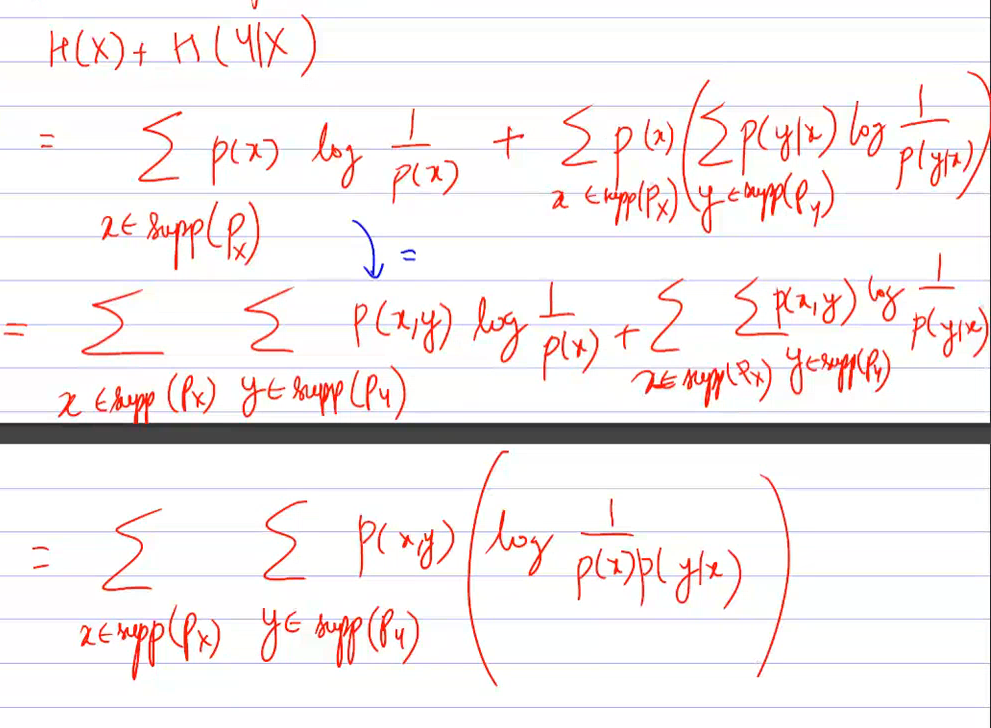 H(X) + H(Y|X)
= ∑_{x ∈ supp(P_X)} p(x) log 1/p(x) + ∑_{x ∈ supp(P_X)} p(x) ( ∑_{y ∈ supp(P_Y)} p(y|x) log 1/p(y|x) )
=
= ∑_{x ∈ supp(P_X)} ∑_{y ∈ supp(P_Y)} p(x,y) log 1/p(x) + ∑_{x ∈ supp(P_X)} ∑_{y ∈ supp(P_Y)} p(x,y) log 1/p(y|x)
= ∑_{x ∈ supp(P_X)} ∑_{y ∈ supp(P_Y)} p(x,y) ( log 1/p(x)p(y|x) )